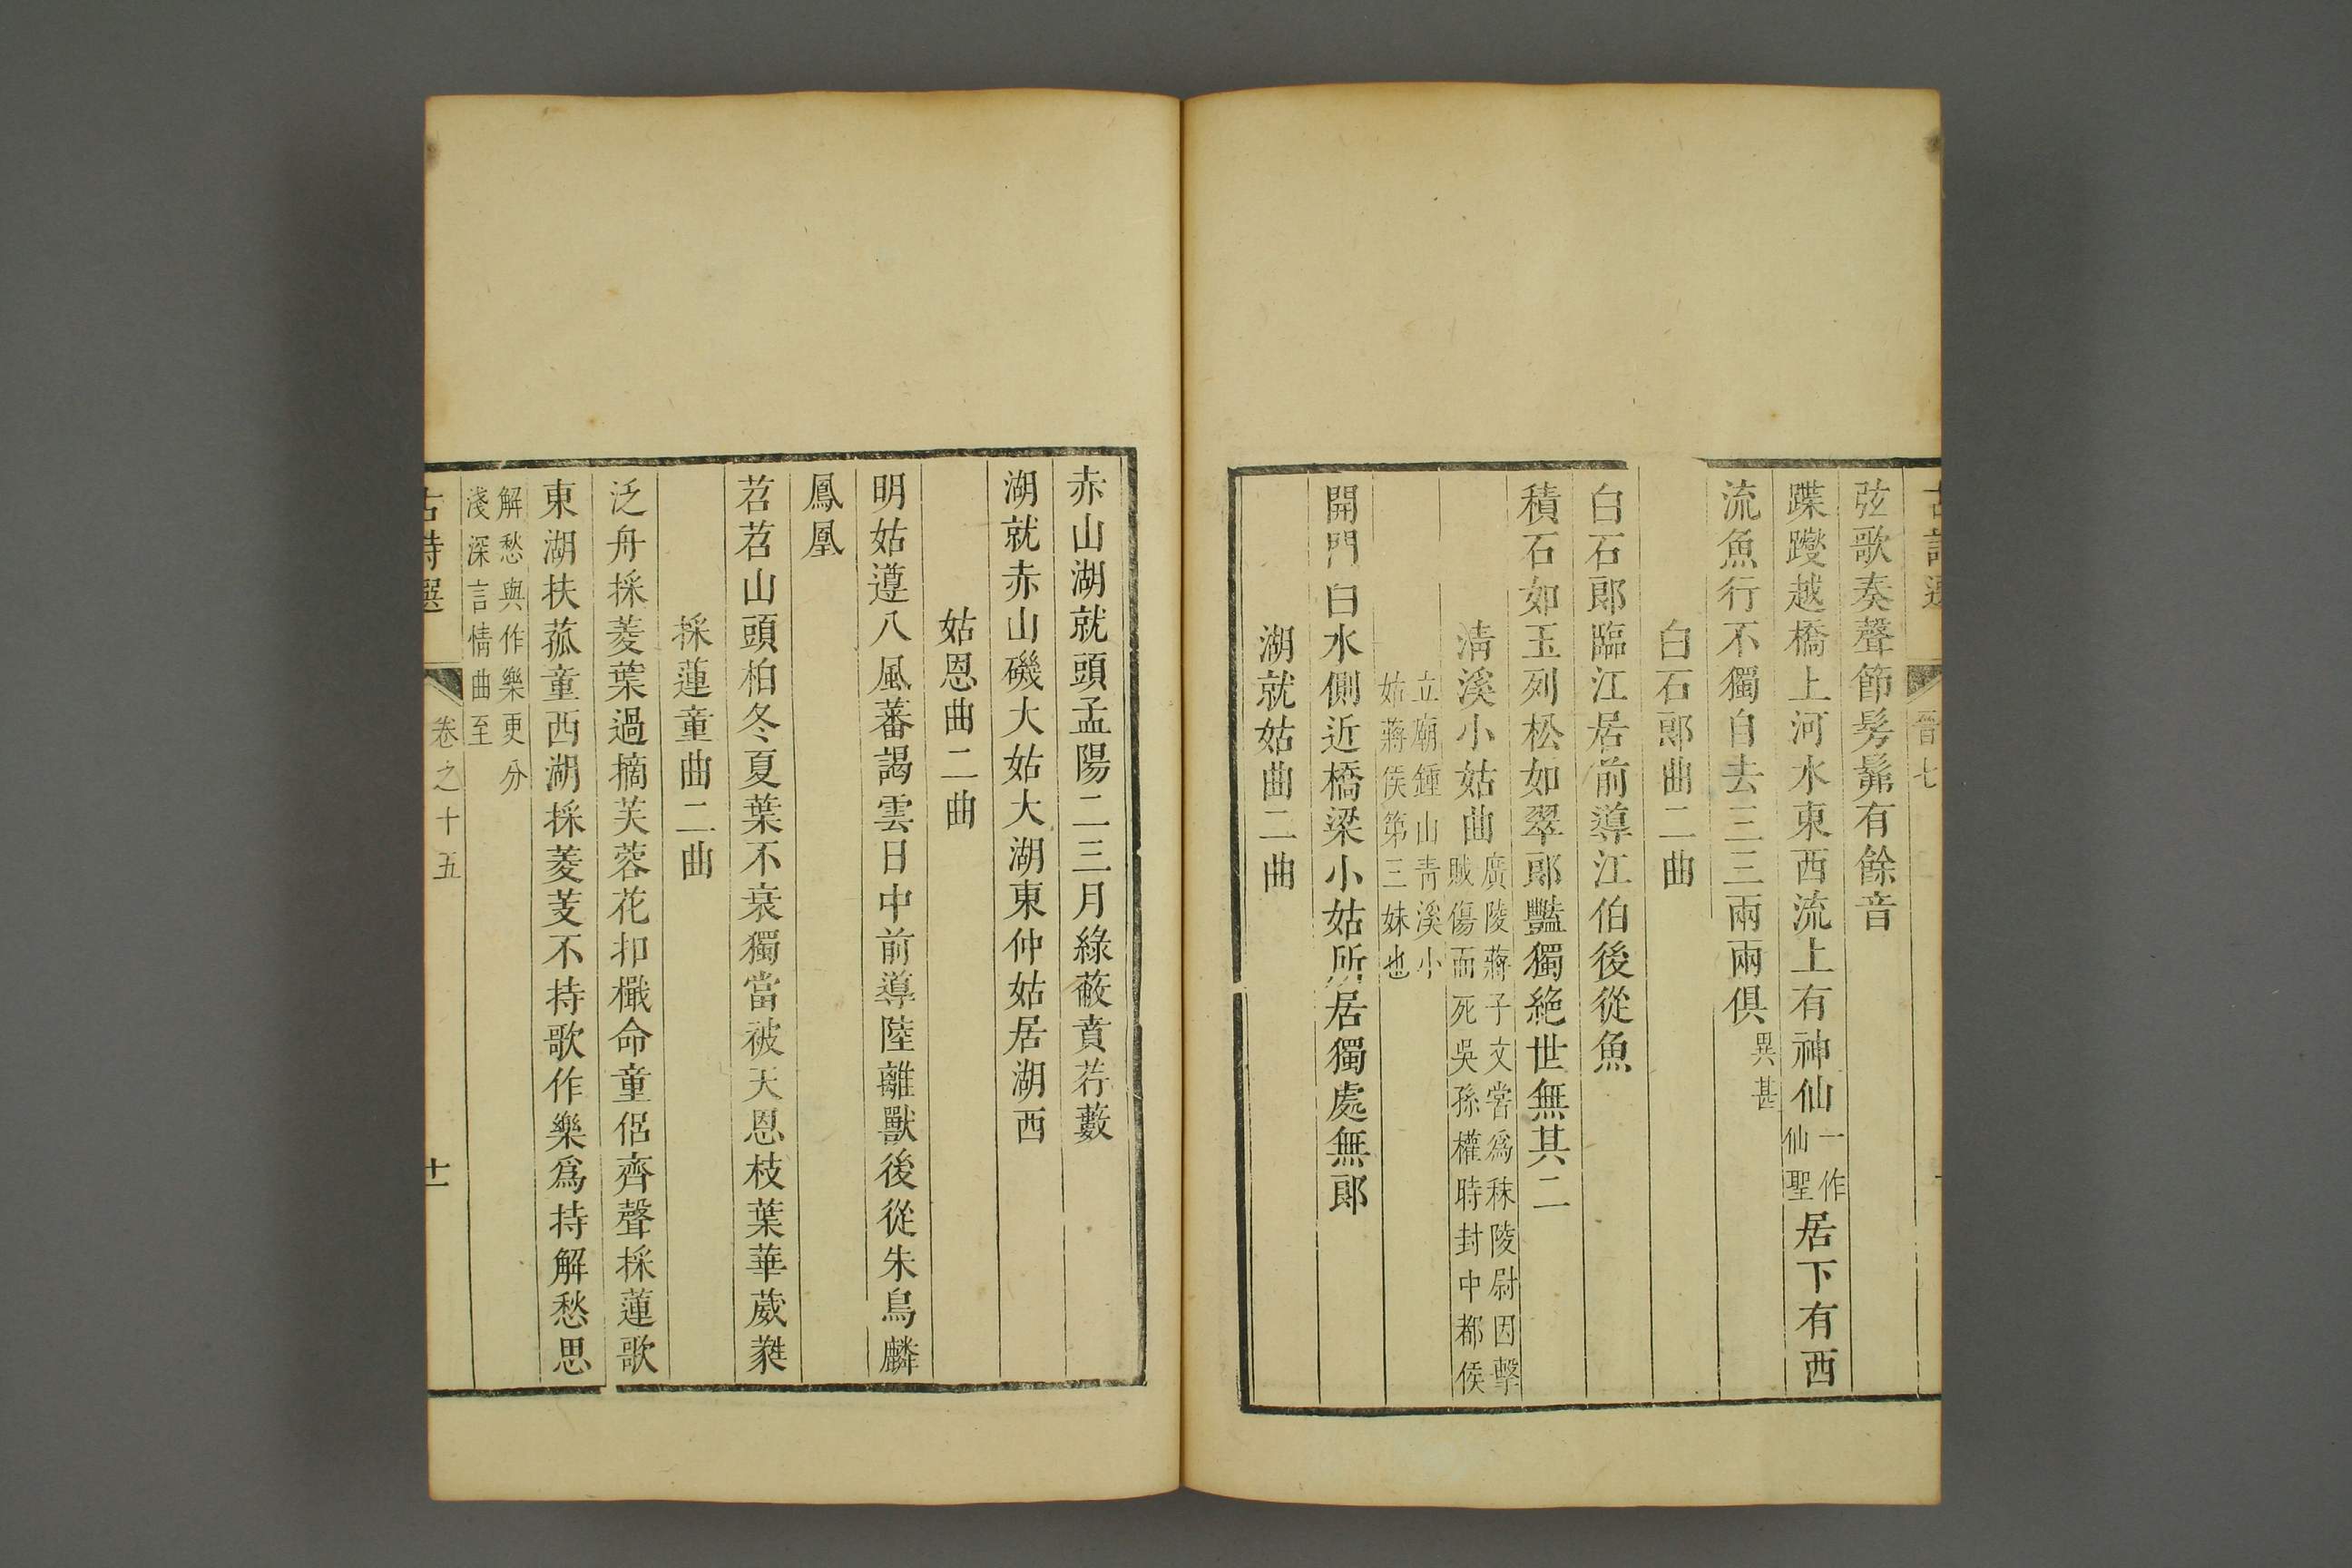 晉七
弦歌奏聲節髣髴有餘音
蹀躞越橋上河水東西流上有神仙一作仙聖居下有西
流魚行不獨自去三三兩兩俱異甚
白石郎曲二曲
白石郎臨江居前導江伯後從魚
積石如玉列松如翠郎豔獨絶世無其二
清溪小姑曲廣陵蔣子文嘗爲秣陵尉因擊賊傷而死吳孫權時封中都侯
立廟鍾山青溪小姑蔣侯第三妹也
開門白水側近橋梁小姑所居獨處無郎
湖就姑曲二曲
赤山湖就頭孟陽二三月綠蔽賁荇藪
湖就赤山磯大姑大湖東仲姑居湖西
姑恩曲二曲
明姑遵八風蕃謁雲日中前導陸離獸後從朱鳥麟
鳳凰
苕苕山頭柏冬夏葉不衰獨當被天恩枝葉華葳蕤
採蓮童曲二曲
泛舟採菱葉過摘芙蓉花扣檝命童侶齊聲採蓮歌
東湖扶菰童西湖採菱芰不持歌作樂爲持解愁思
解愁與作樂更分淺深言情曲至
古詩選 卷之十五 十一